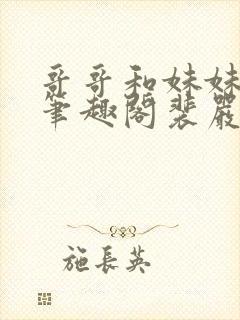 哥哥和妹妹
筆趣閣裴嚴
施長英